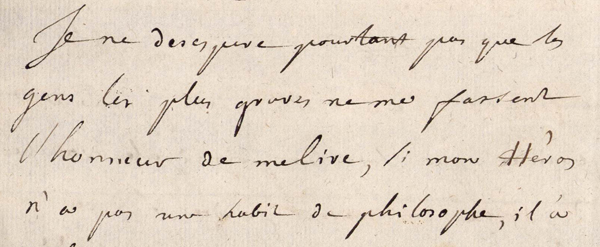 Je ne desespere pourtant pas que les
gens les plus graves ne me fassent
l'honneur de me lire, si mon Héros
n'a pas une habit de philosophe, il a